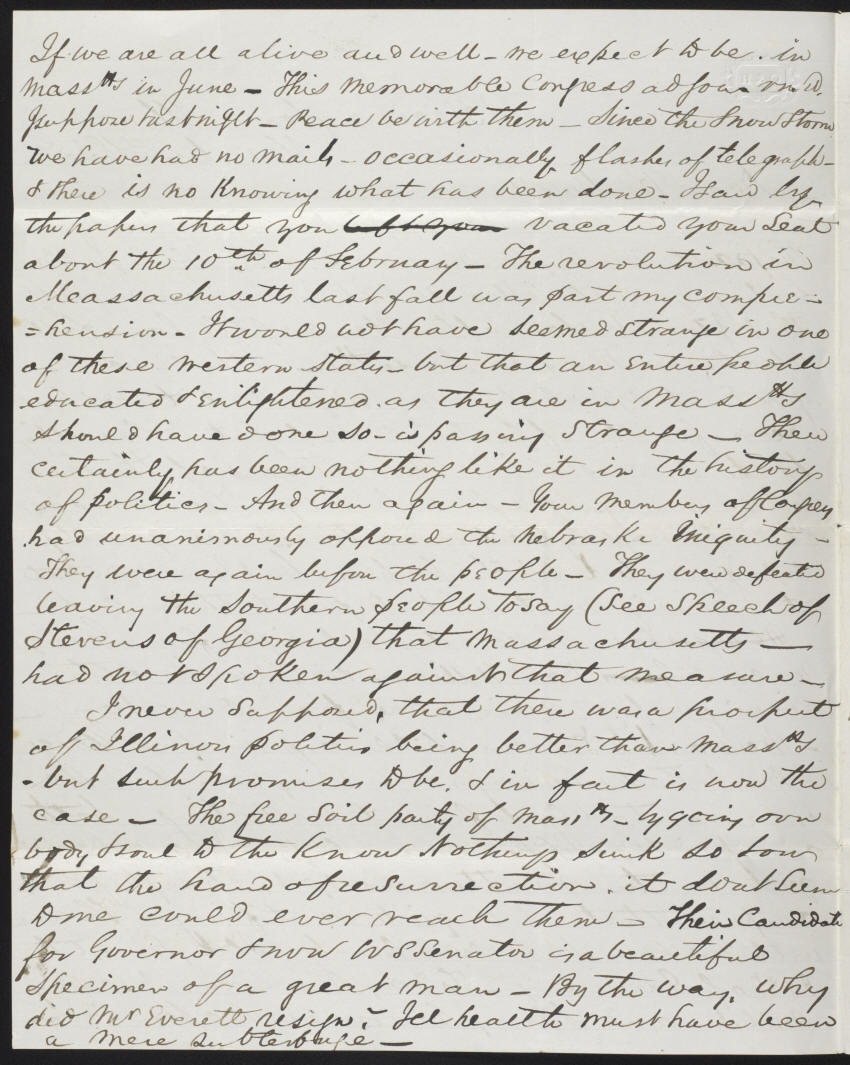 If we are all alive and well - we expect to be . in
Mass^tts in June - This memorable Congress adjourned,
I suppose last night - Peace be with them - Since the Snow Storm
we have had no mails - occasionally flashes of telegraph -
& there is no Knowing what has been done - I saw by
the papers that you vacated your Seat
about the 10^th of February - The revolution in
Massachusetts last fall was past my compre-
=hension - It would not have seemed strange in one
of these western States - but that an Entire people
educated & Enlightened as they are in Mass^tts
should have done so - is passing Strange - There
certainly has been nothing like it in the history
of politics - And then again - Your Members of Congress
had unanimously opposed the Nebraska Iniquity -
They were again before the people - They were defeated
leaving the Southern people to say (See Speech of
Stevens of Georgia) that Massachusetts -
had not Spoken against that measure -
I never Supposed, that there was a prospect
of Illinois politics being better than Mass^tts
- but such promises to be. & in fact is now the
case - The free Soil party of Mass^tts - by going over
body & soul to the Know Nothings sunk so low
that the hand of resurrection . it dont Seem
to me could ever reach them - Their Candidate
for Governor & now US Senator is a beautiful
Specimen of a great man - By the way, why
did Mr Everett resign? Ill health must have been
a mere subterfuge -